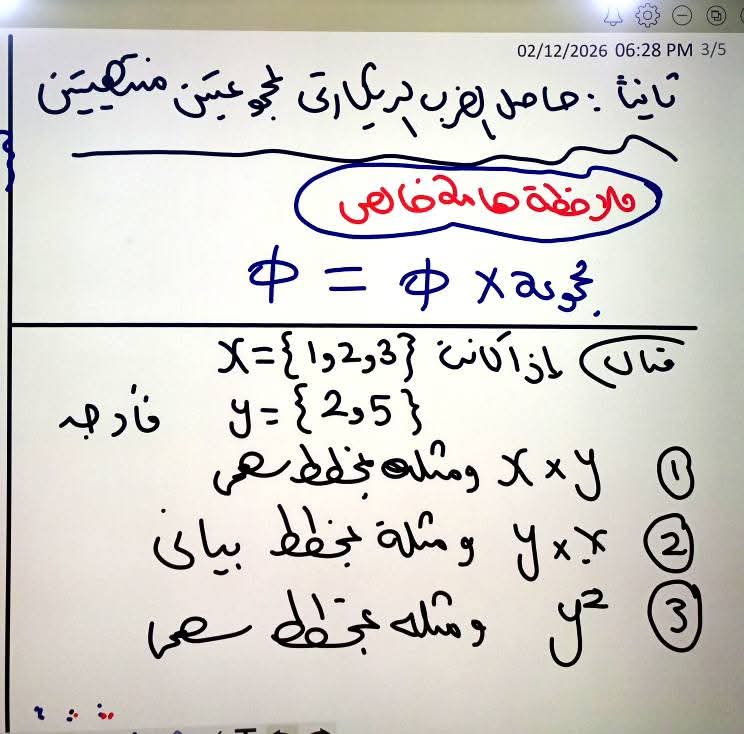 02/12/2026 06:28 PM 3/5
ثانياً : حاصل الضرب الديكارتى لمجموعتين منتهيتين
ملاحظة هامة خالص
Φ = Φ ×
مثال إذا كانت X={1,2,3}
y={2,5} فأوجد
① X×y ومثله بمخطط سهمى
② y×X ومثلة بمخطط بيانى
③ y² ومثله بمخطط سهمى